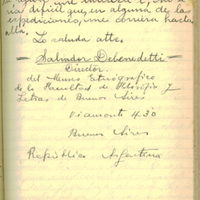 na difícil que, en alguna de las
expediciones, me corriera hasta
allá.
Le saluda atte.
— Salvador Debenedetti —
Director
del Museo Etnográfico
de la Facultad de Filosofía y
Letras de Buenos Aires
Viamonte 430
Buenos Aires
República Argentina